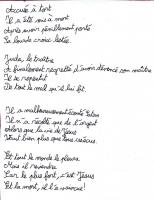 Accusé à tort
Il a été mis à mort
Après avoir péniblement porté
Sa lourde croix lestée.
Juda, le traître
A finalement regretté d'avoir dénoncé son maître
Il se repentit
De tout le mal qu'il lui fit.
Il a malheureusement écouté Satan
Il n'a récolté que de l'argent
Alors que la vie de Jésus
Vaut bien plus que tous
Et tout le monde le pleure
Mais il reviendra
Car le plus fort, c'est Jésus
Et la mort, il l'a vaincue!